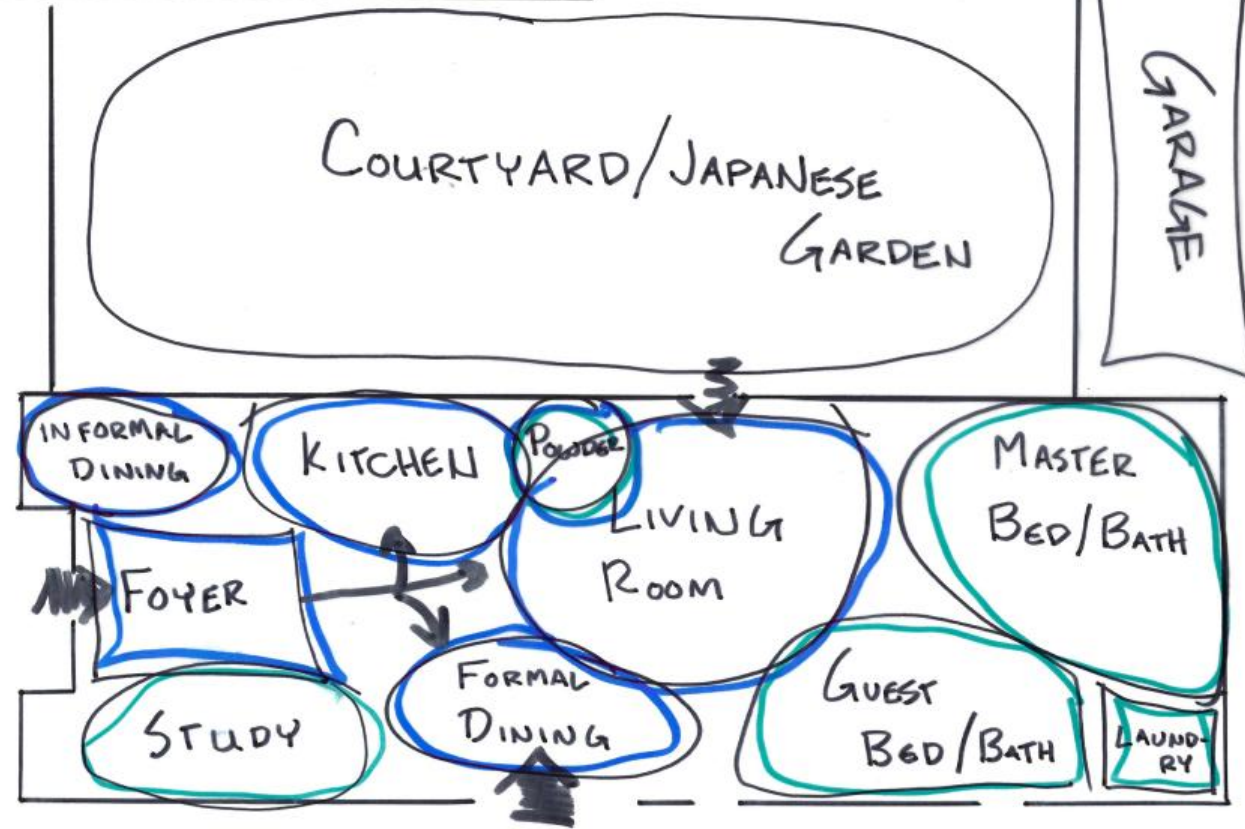 COURTYARD/JAPANESE
GARDEN
GARAGE
INFORMAL
DINING
KITCHEN
POWDER
LIVING
ROOM
MASTER
BED/BATH
FOYER
STUDY
FORMAL
DINING
GUEST
BED/BATH
LAUND-
RY